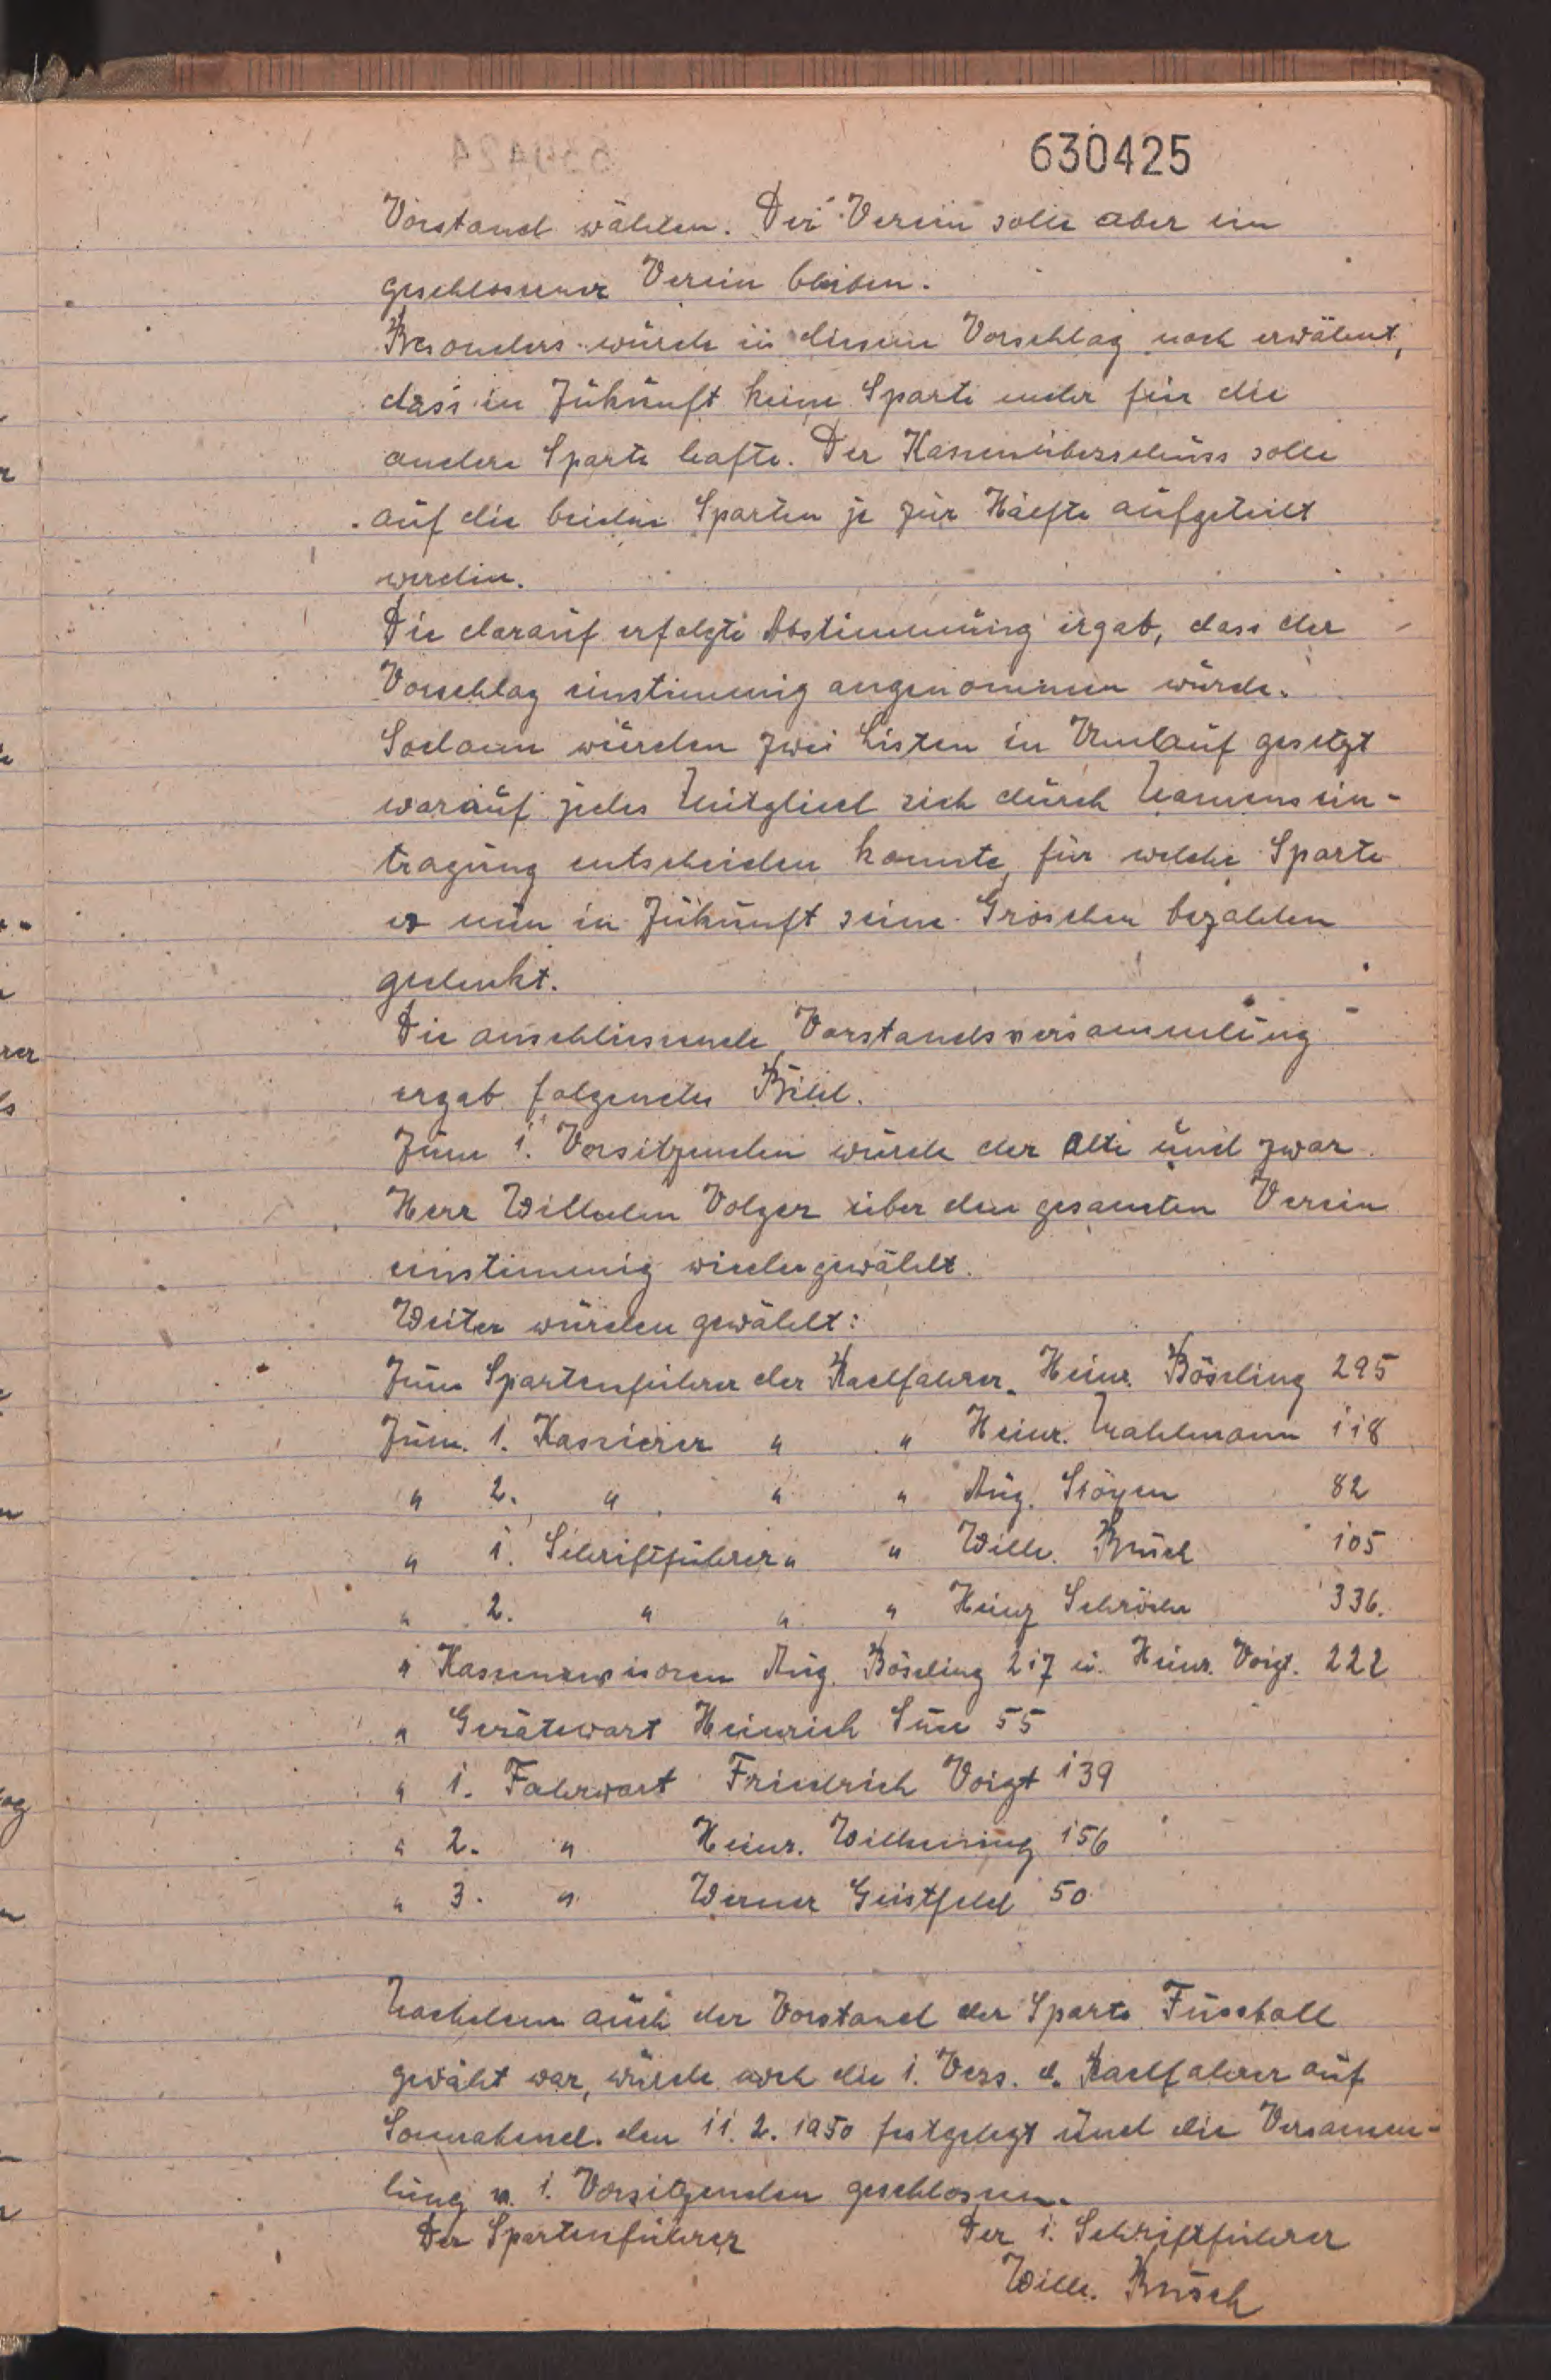 630425
Vorstand wählen. Der Verein solle aber ein
geschlossener Verein bleiben.
Besonders wurde in diesem Vorschlag noch erwähnt,
dass in Zukunft keine Sparte mehr für die
andere Sparte hafte. Der Kassenüberschuss solle
auf die beiden Sparten je zur Hälfte aufgeteilt
werden.
Die darauf erfolgte Abstimmung ergab, dass der
Vorschlag einstimmig angenommen wurde.
Sodann wurden zwei Listen in Umlauf gesetzt
worauf jedes Mitglied sich durch Namensein-
tragung entscheiden konnte, für welche Sparte
es nun in Zukunft seine Groschen bezahlen
gedenkt.
Die anschliessende Vorstandsversammlung
ergab folgendes Bild.
Zum 1. Vorsitzenden wurde der Alte und zwar
Herr Wilhelm Volger über den gesamten Verein
einstimmig wiedergewählt.
Weiter wurden gewählt:
Zum Spartenführer der Radfahrer Heinr. Böseling 295
Zum 1. Kassierer " " Heinr. Mahlmann 118
" 2. " " " Aug. 82
" 1. Schriftführer " " Wilh. Busch 105
" 2. " " " Heinz Schröder 336.
" Kassenrevisoren Aug. Böseling 217 u. Heinr. Voigt. 222
" Gerätewart Heinrich 55
" 1. Fahrwart Friedrich Voigt 139
" 2. " Heinr. Wilkening 156
" 3. " Werner Geistfeld 50
Nachdem auch der Vorstand der Sparte Fussball
gewählt war, wurde noch die 1. Vers. d. Radfahrer auf
Sonnabend. den 11. 2. 1950 festgelegt und die Versamm-
lung v. 1. Vorsitzenden geschlossen.
Der Spartenführer Der 1. Schriftführer
Wilh. Busch